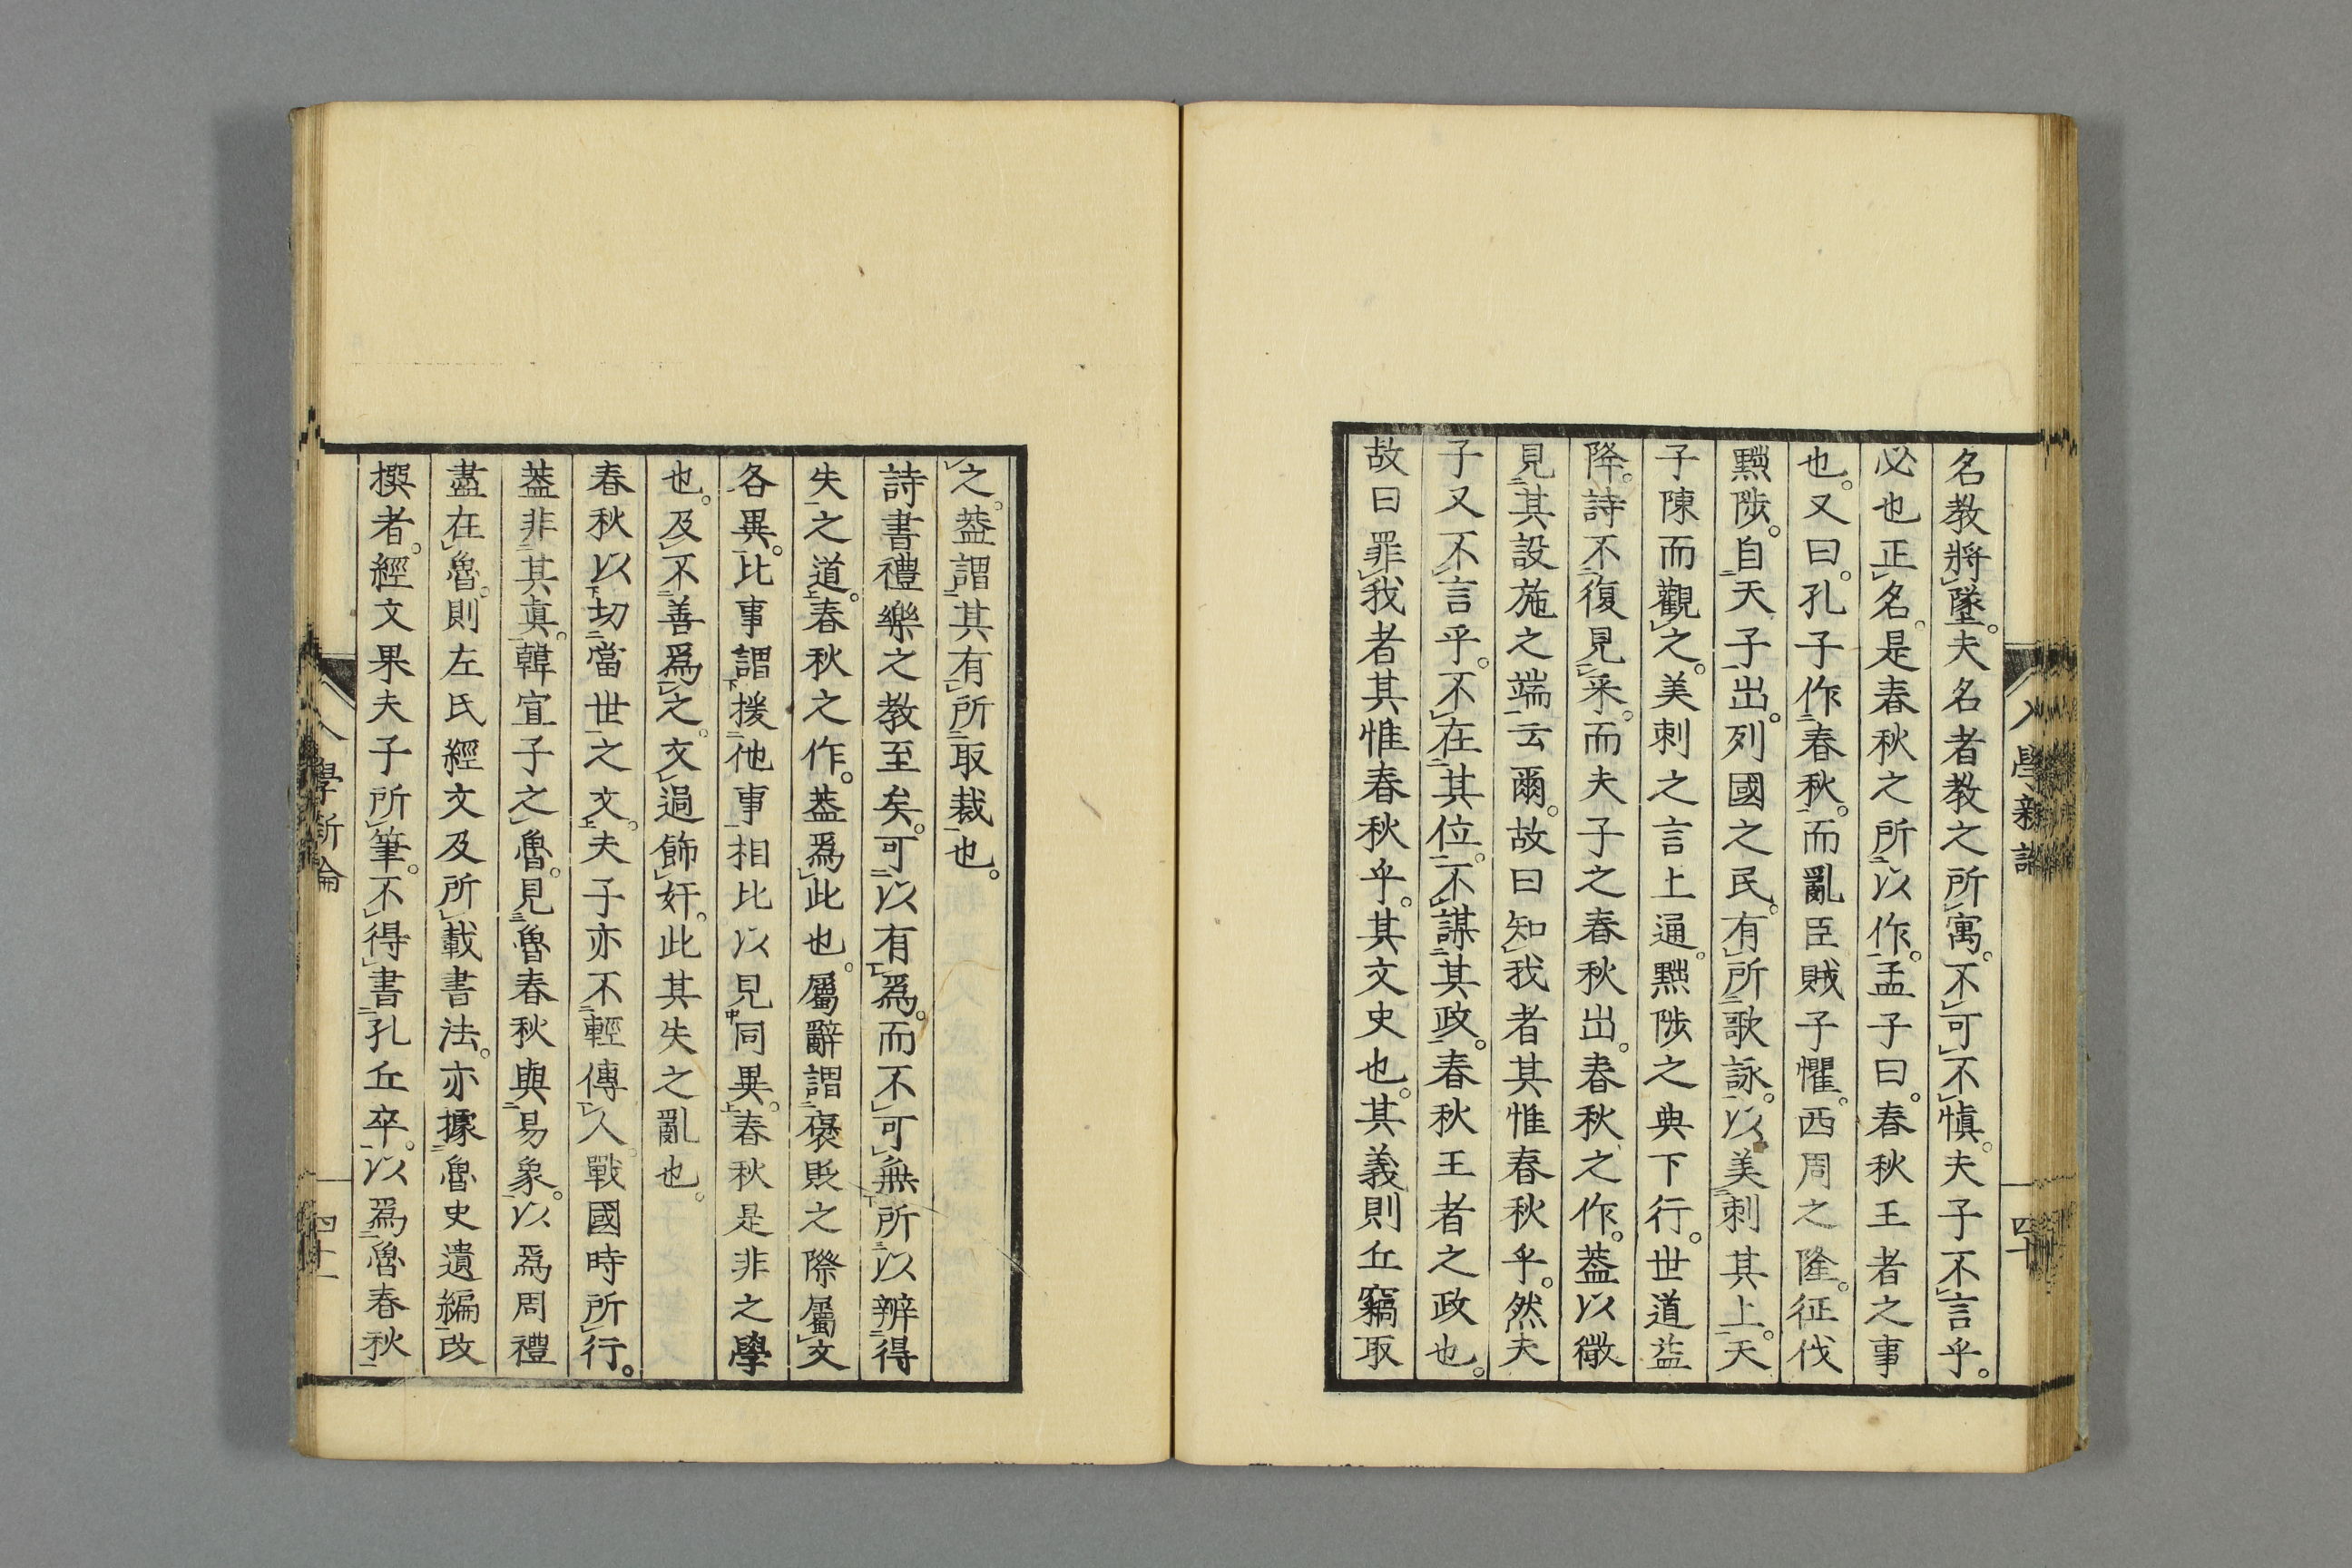 名教將墜。夫名者教之所寓。不可不愼。夫子不言乎。
必也正名。是春秋之所以作。孟子曰。春秋王者之事
也。又曰。孔子作春秋。而亂臣賊子懼。西周之隆。征伐
黜陟。自天子出。列國之民。有所歌詠。以美刺其上。天
子陳而觀之。美刺之言上通。黜陟之典下行。世道益
降。詩不復見采。而夫子之春秋出。春秋之作。葢以徵
見其設施之端云爾。故曰知我者其惟春秋乎。然夫
子又不言乎。不在其位。不謀其政。春秋王者之政也。
故曰罪我者其惟春秋乎。其文史也。其義則丘竊取
之。葢謂其有所取裁也。
詩書禮樂之教至矣。可以有爲。而不可無所以辨得
失之道。春秋之作。葢爲此也。屬辭謂褒貶之際屬文
各異。比事謂援他事相比以見同異。春秋是非之學
也。及不善爲之。文過飾奸。此其失之亂也。
春秋以切當世之文。夫子亦不輕傳人。戰國時所行。
葢非其眞。韓宣子之魯。見魯春秋與易象。以爲周禮
盡在魯。則左氏經文及所載書法。亦據魯史遺編改
撰者。經文果夫子所筆。不得書孔丘卒。以爲魯春秋
學新論
四十一